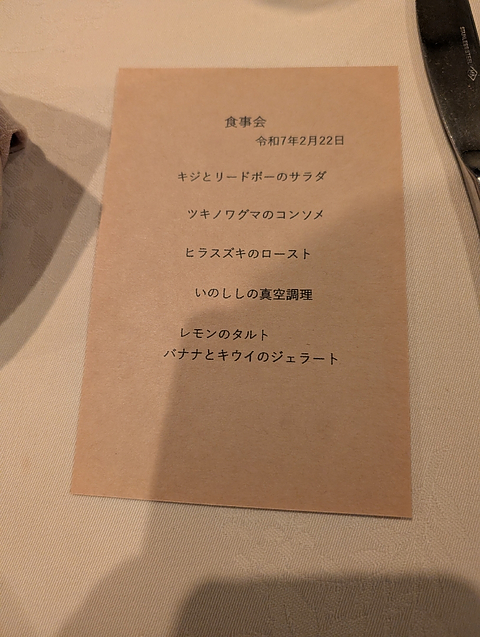 食事会
令和7年2月22日
キジとリードボーのサラダ
ツキノワグマのコンソメ
ヒラスズキのロースト
いのししの真空調理
レモンのタルト
バナナとキウイのジェラート